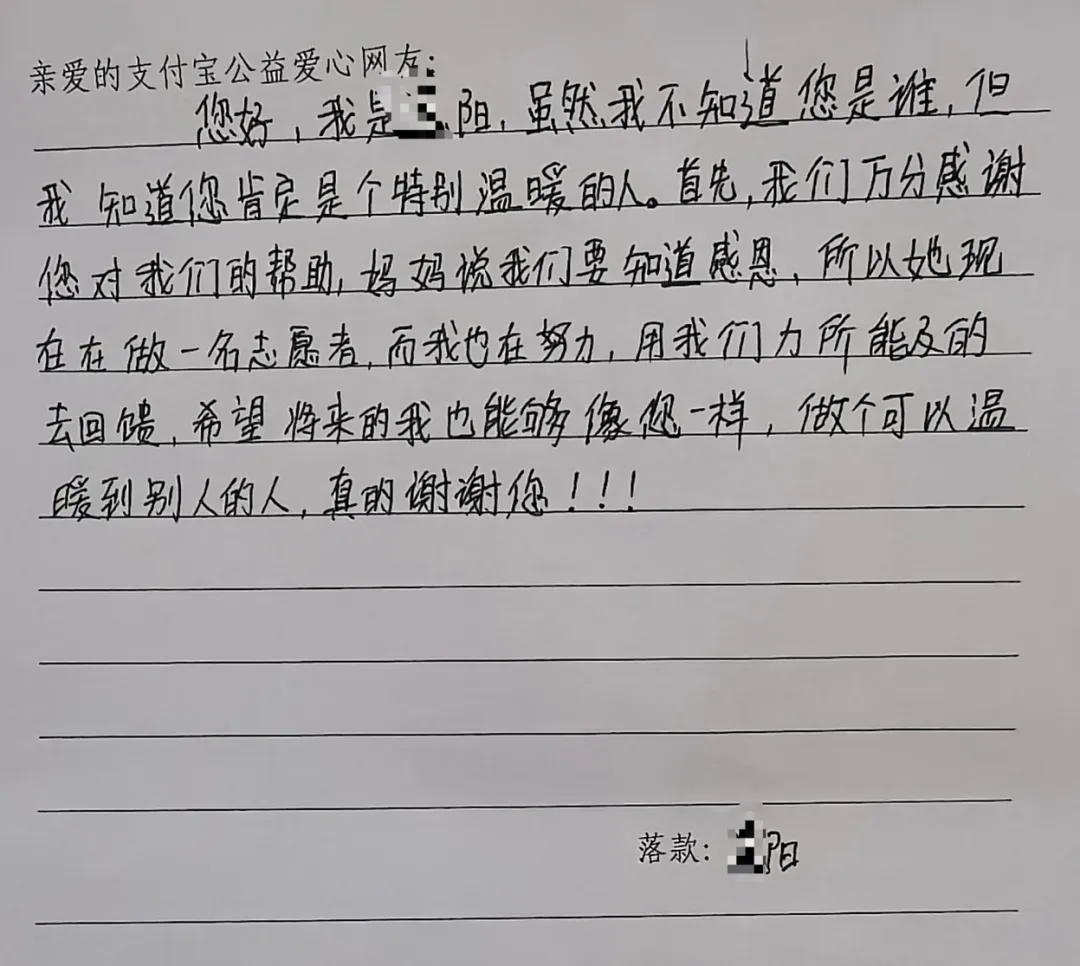 亲爱的支付宝公益爱心网友:
您好，我是阳，虽然我不知道您是谁，但
我知道您肯定是个特别温暖的人。首先，我们万分感谢
您对我们的帮助，妈妈说我们要知道感恩，所以她现
在在做一名志愿者，而我也在努力，用我们力所能及的
去回馈，希望将来的我也能够像您一样，做个可以温
暖到别人的人，真的谢谢您！！！
落款: 阳